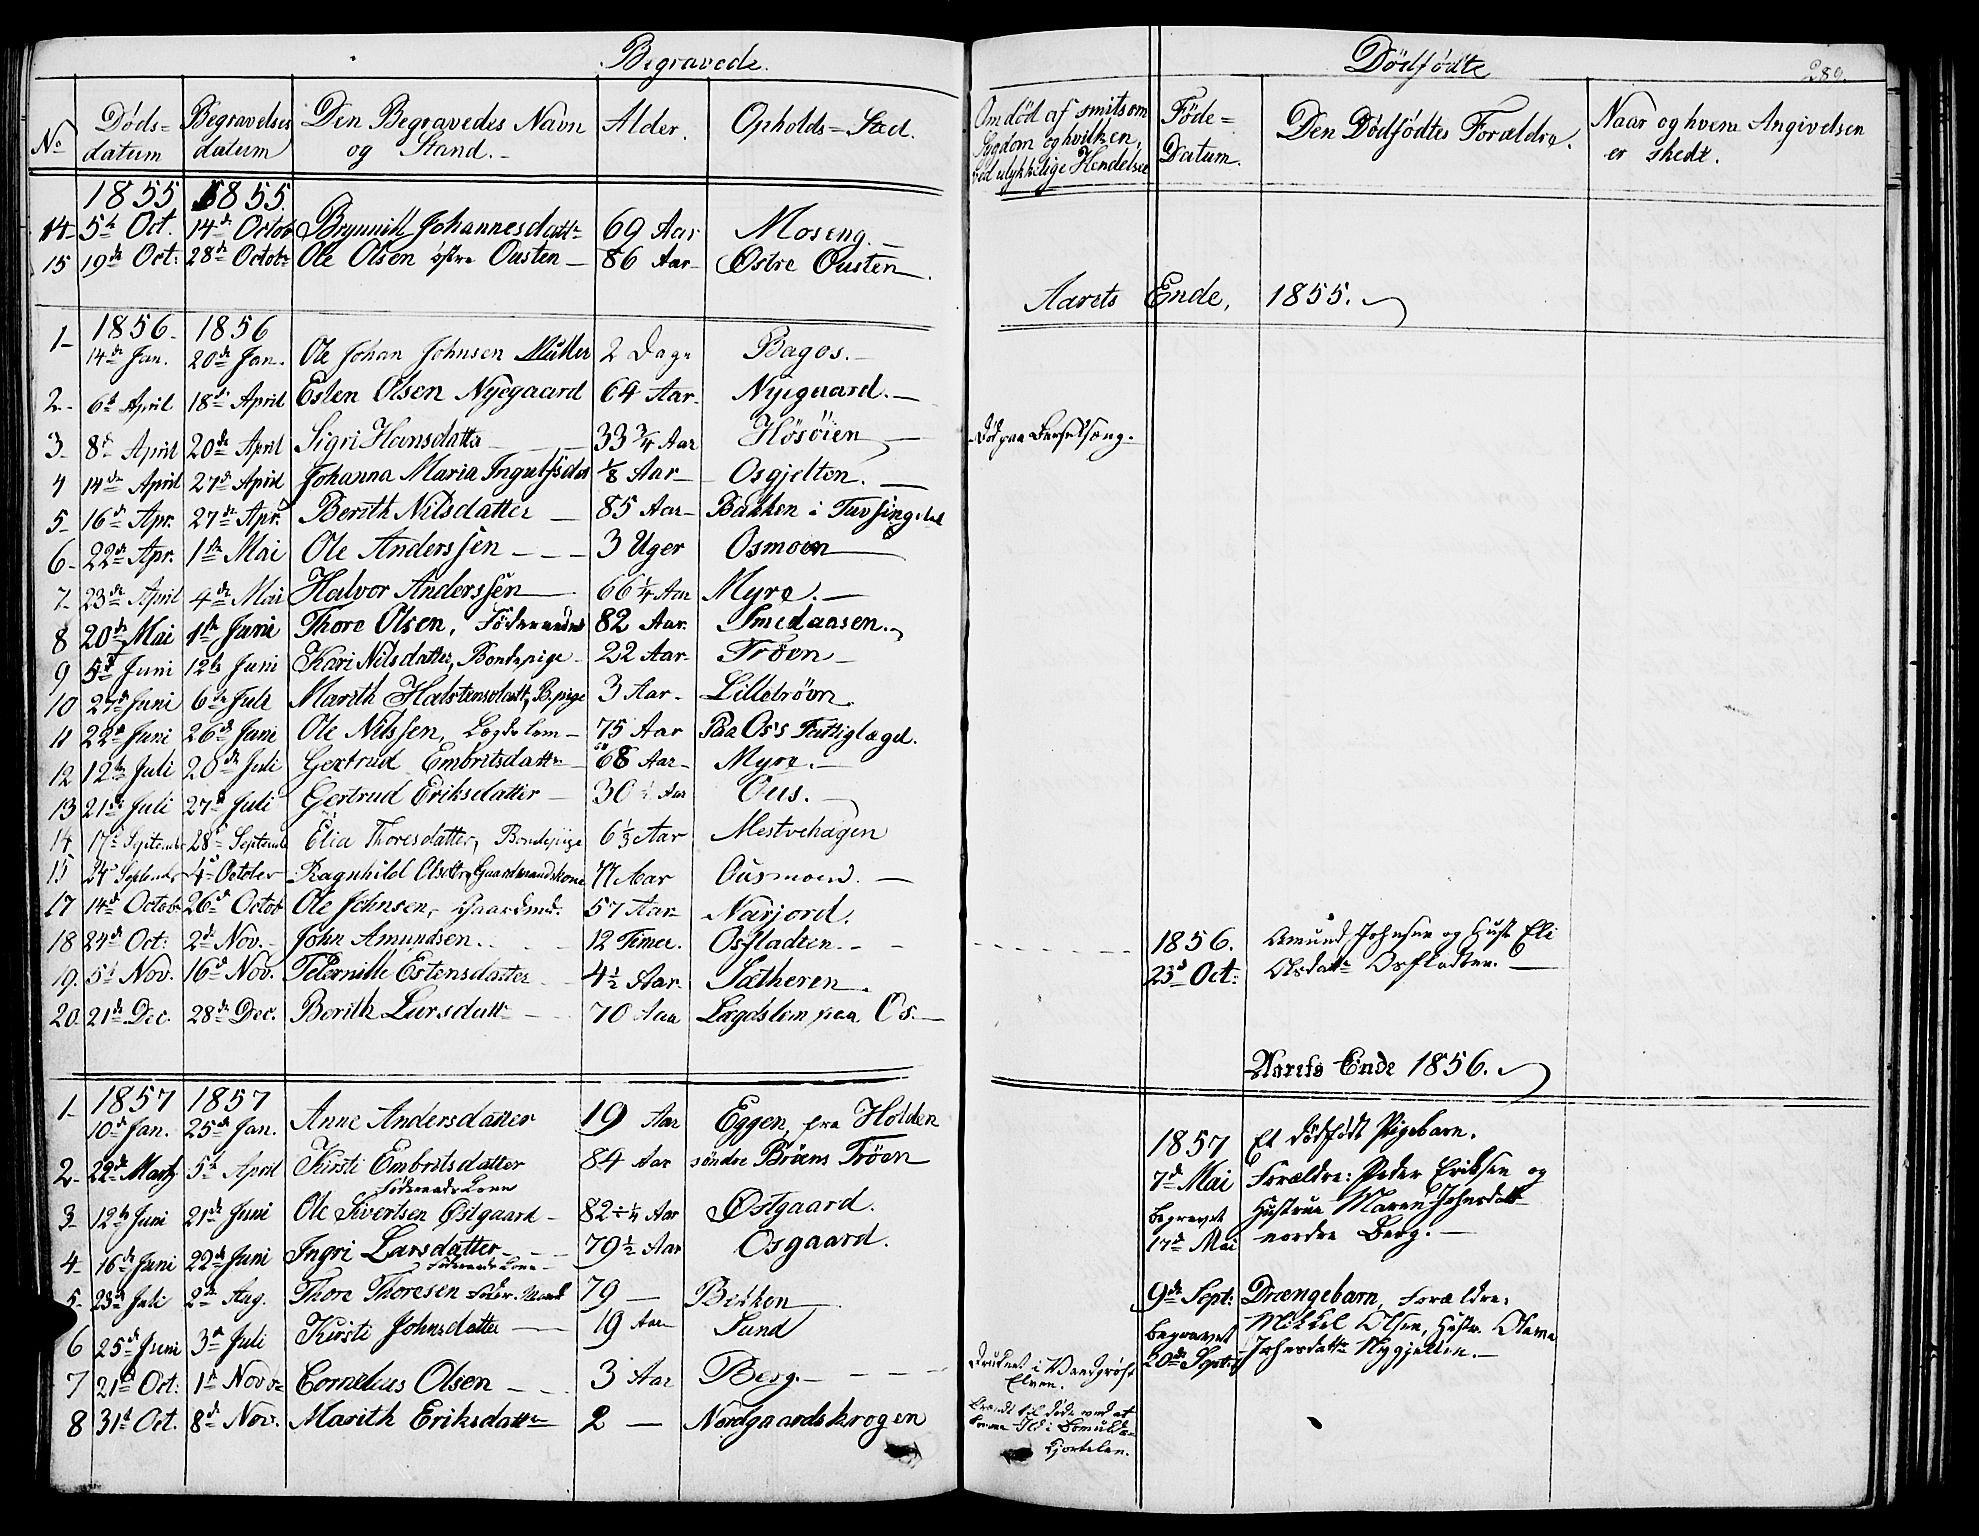 Begravede.
No
Døds=
datum
Begravelses
datum
Den Begravedes Navn
og Stand.-
Alder.
Opholds=Sted.
1855 1855.
14- 5te Oct. 14de Octob Brynnild Johannesdattr 69 Aar Moseng.-
15 19de Oct: 28de Octobr Ole Olsen østre Ousten - 86 Aar- Østre Ousten.
1856- 1856
1- 14de Jan. 20de Jan. Ole Johan Johnsen Müller 2 Dage Bagos.-
2- 6te April 18de April Esten Olsen Nyegaard 64 Aar- Nyegaard.-
3- 8de April 20de April Sigri Hansdatter 33 3/4 Aar Høsøien
4 14de April 27de April Johanna Maria Ingulfsdat 1/8 Aar- Osgjelten.-
5- 16de Apr. 27de Apr. Berith Nilsdatter - 85 Aar- Bakken i Tufsingdal
6- 22de Apr. 1ste Mai Ole Anderssen - - - 3 Uger Osmoen
7- 23de April 4de Mai Halvor Anderssen 66 1/4 Aar Myre.-
8 20de Mai 1ste Juni Thore Olsen, Føderaads 82 Aar. Smedaasen.
9 5te Juni 12te Juni Kari Nilsdatter, Bondepige - 22 Aar- Trøen-
10 27de Juni 6te Juli Marith Halstensdatt, B.pige 3 Aar- Lilletrøen.
11 22de Juni 26de Juni Ole Nilssen, Lægdslem - 75 Aar Paa Os's Fattiglægd.
12 12te Juli 20de Juli Gertrud Embritsdattr 68 Aar- Myre.-
13 21de Juli 27de Juli Gertrud Eriksdatter - 30 1/2 Aar Ous.-
14 17de September 28de Septemb Elia Thoresdatter, Bondepige 6 1/3 Aar Mestvehagen
15 24de September 4de October Ragnhild Olsdtr, Gaardmandskone 77 Aar Ousmoen.-
17 14de Octob 26de Octob Ole Johnsen, Gaardmd. 57 Aar Narjord.
18 24de Oct: 2de Nov.- John Amundsen.- 12 Timer. Osfladten.-
19. 5te Nov. 16de Nov. Peternille Estensdatter 4 1/2 Aar Sætheren.
20. 21de Dec. 28de Dec. Berith Larsdattr 70 Aar Lægdslem paa Os.-
1857 1857
1- 10de Jan. 25de Jan. Anne Andersdatter 19 Aar Eggen, fra Holden
2- 22de Marts 5te April Kirsti Embritsdatter 84 Aar søndre Bröens Trøen
Føderaads Kone
3- 12te Juni 21de Juni Ole Sivertsen Østgaard- 82 1/4 Aar Østgaard.
4- 16de Juni 22de Juni Ingri Larsdatter- 79 1/2 Aar Osgaard.
Føderaads Kone-
5- 23de Juli 2de Aug. Thore Thoresen Føder. Mand 79 - Bakken
6 25de Juni 3de Juli Kirsti Johnsdatter 19 Aar Sund
7 21de Oct: 1ste Novbr Cornelius Olsen - - 3 Aar Berg.-
8 31te Oct. 8de Nov. Marith Eriksdattr 2 - Nordgaardskrogen
Dødfødte
280.
Om død af smitsom
Sygdom og hvilken,
ved ulykkelige Hendelser
Føde=
Datum.
Den Dødfødtes Forældre.
Naar og hvem Angivelsen
er skedt.
Aarets Ende, 1855.
Død paa Barselseng.
1856. Amund Johnsen og Hust. Eli
23de Oct: Olsdattr Osfladten.-
Aarets Ende 1856.
1857 Et dødfødt Pigebarn.
7de Mai Forældre: Peder Eriksen og
begravet Hustrue Maren Johnsdatt
17de Mai nordre Berg.-
9de Sept: Drængebarn, Forældre:
begravet Mikkel Olsen, Hustr. Olava
20de Sept: Johnsdattr Nygjelten.-
Druknet i Vandgrøft
Elven.
Brændt til døde ved at
komme Ild i Bomulds
Skjortelen.